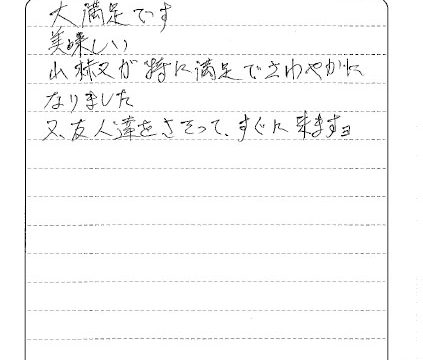 大満足です
美味しい
山椒又が特に満足でさわやかに
なりました
又、友人達をさそって、すぐに来ますョ